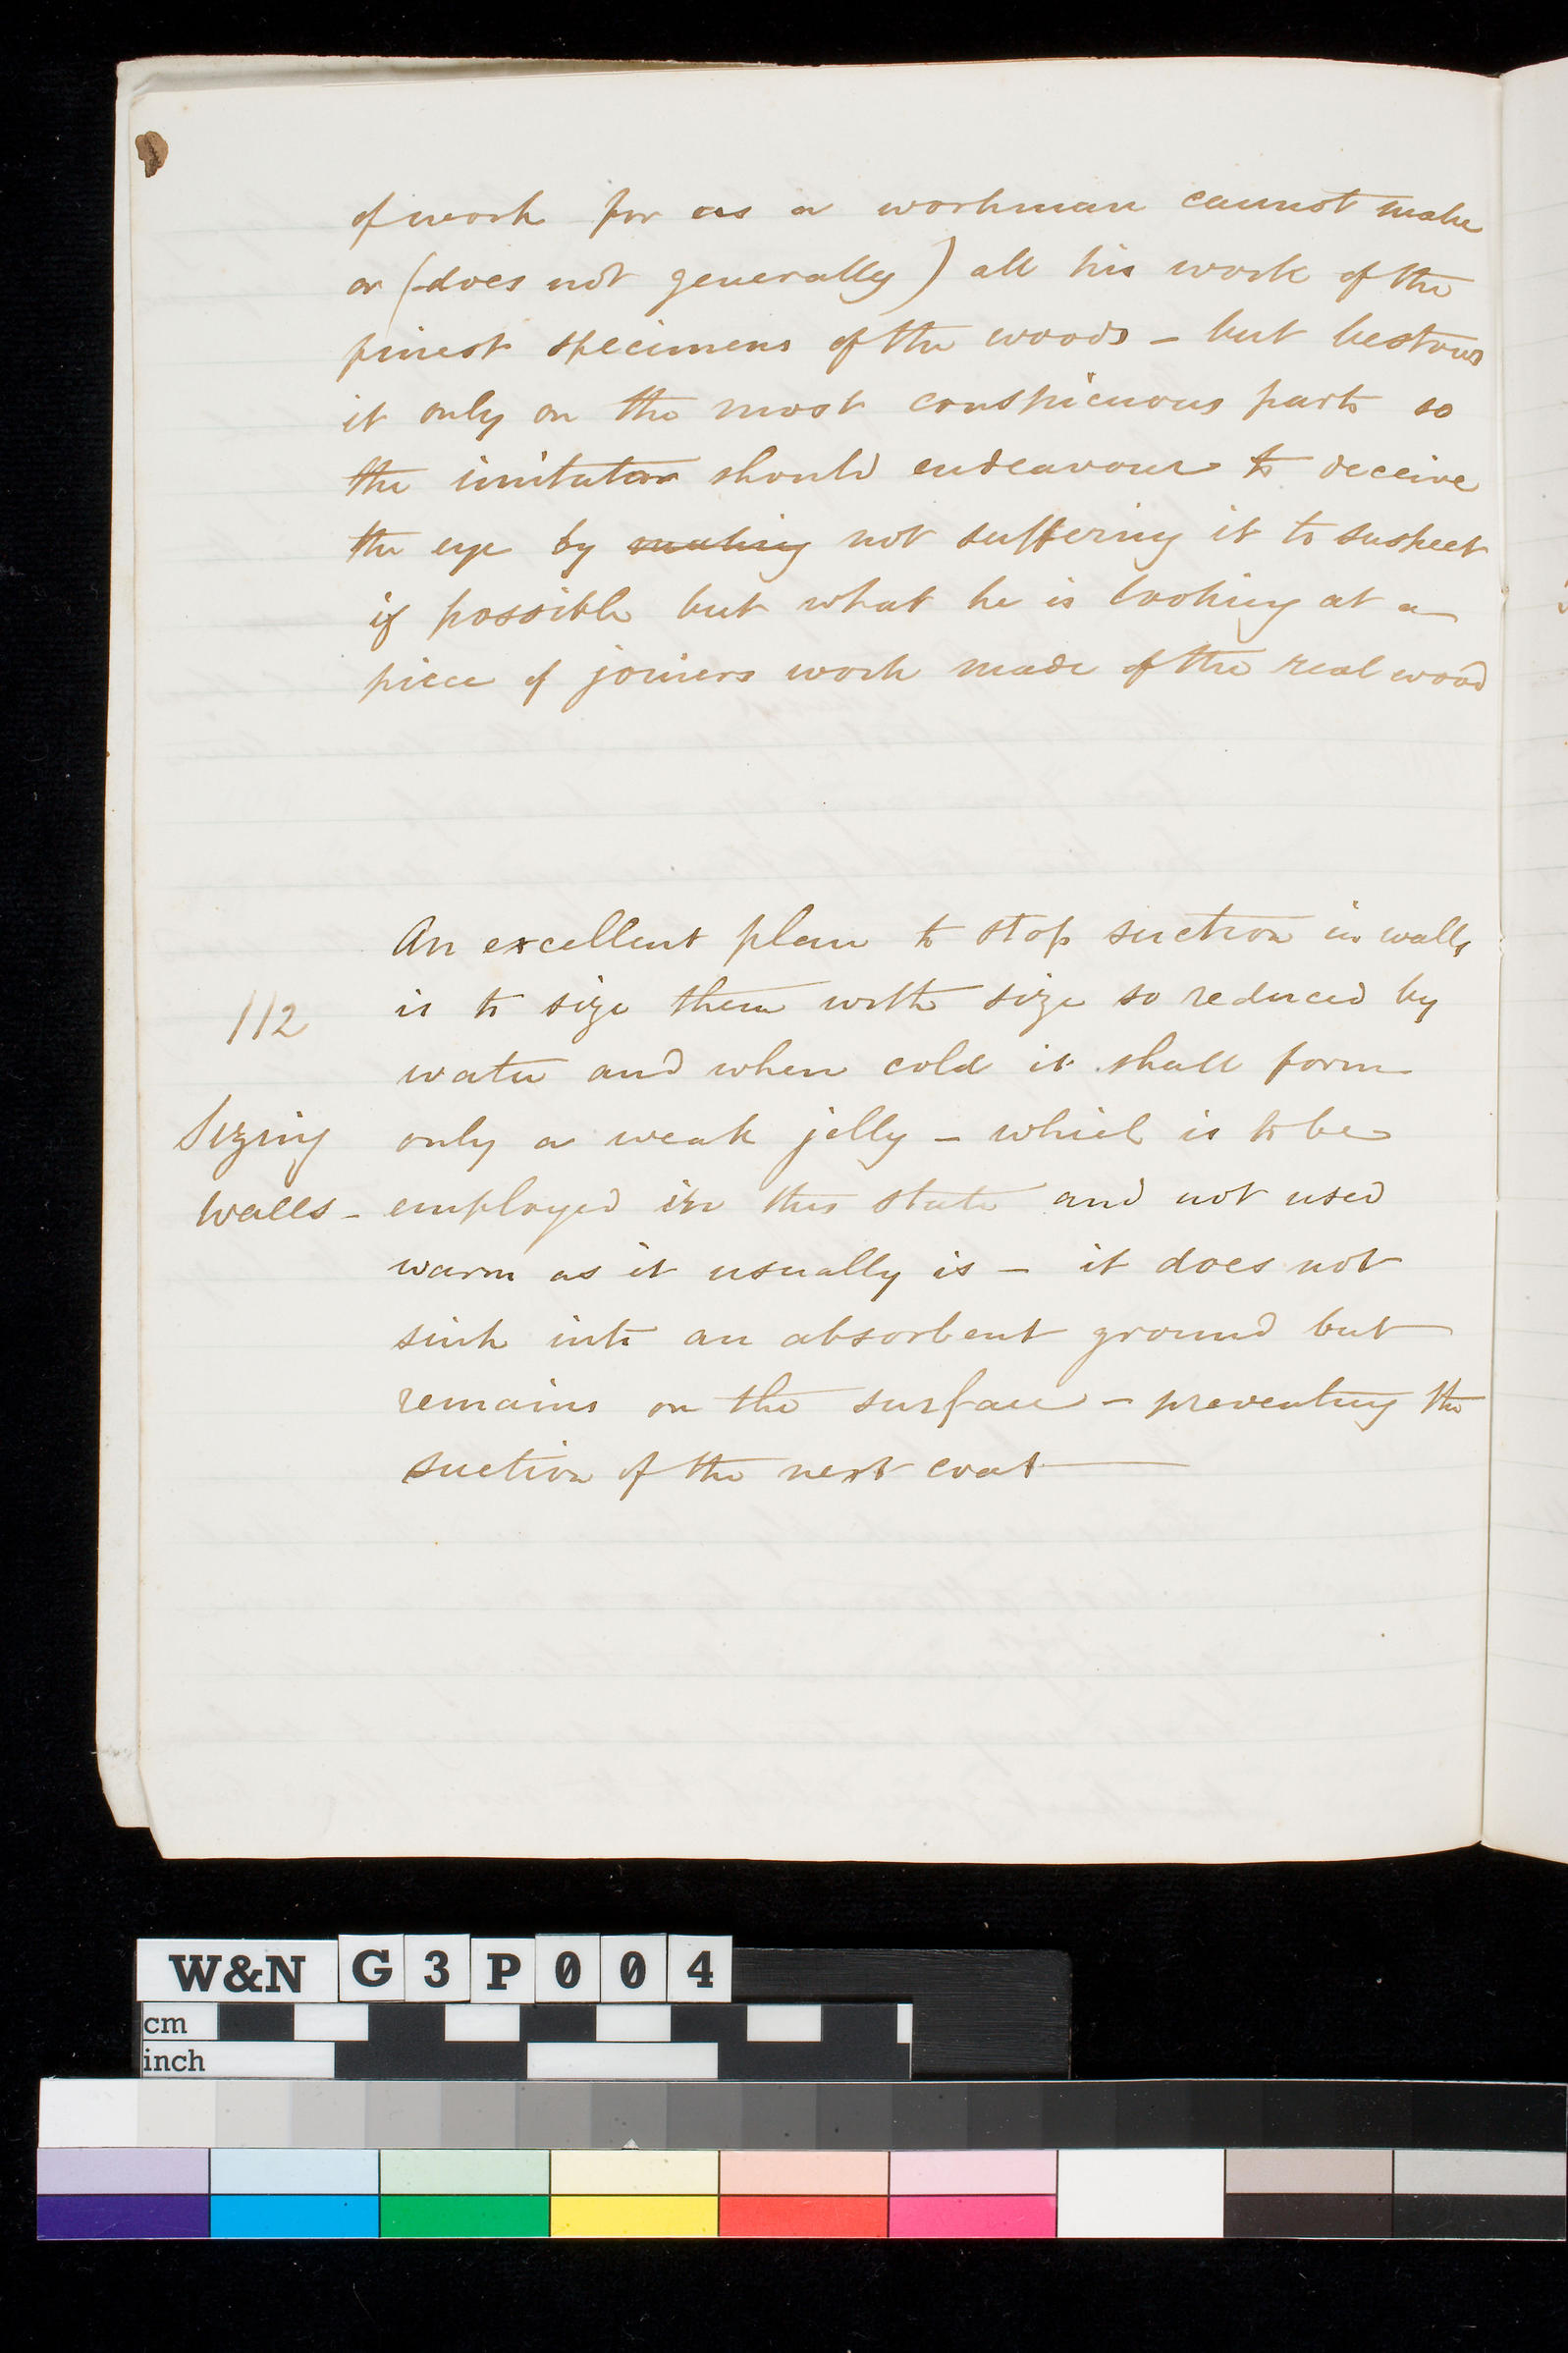 of work for as a workman cannot make
or (does not generally) all his work of the
finest specimens of the woods - but bestows
it only on the most conspicuous parts so
the imitator should endeavour to deceive
the eye by making not suffering it to suspect
if possible but what he is looking at a
piece of joiners work made of the real wood
An excellent plan to stop suction in walls
112
is to size them with size so reduced by
water and when cold it shall form
Sizing
only a weak jelly - which is to be
Walls -
employed in this state and not used
warm as it usually is - it does not
sink into an absorbent ground but
remains on the surface - preventing the
suction of the next coat
W&N G3P004
cm
inch